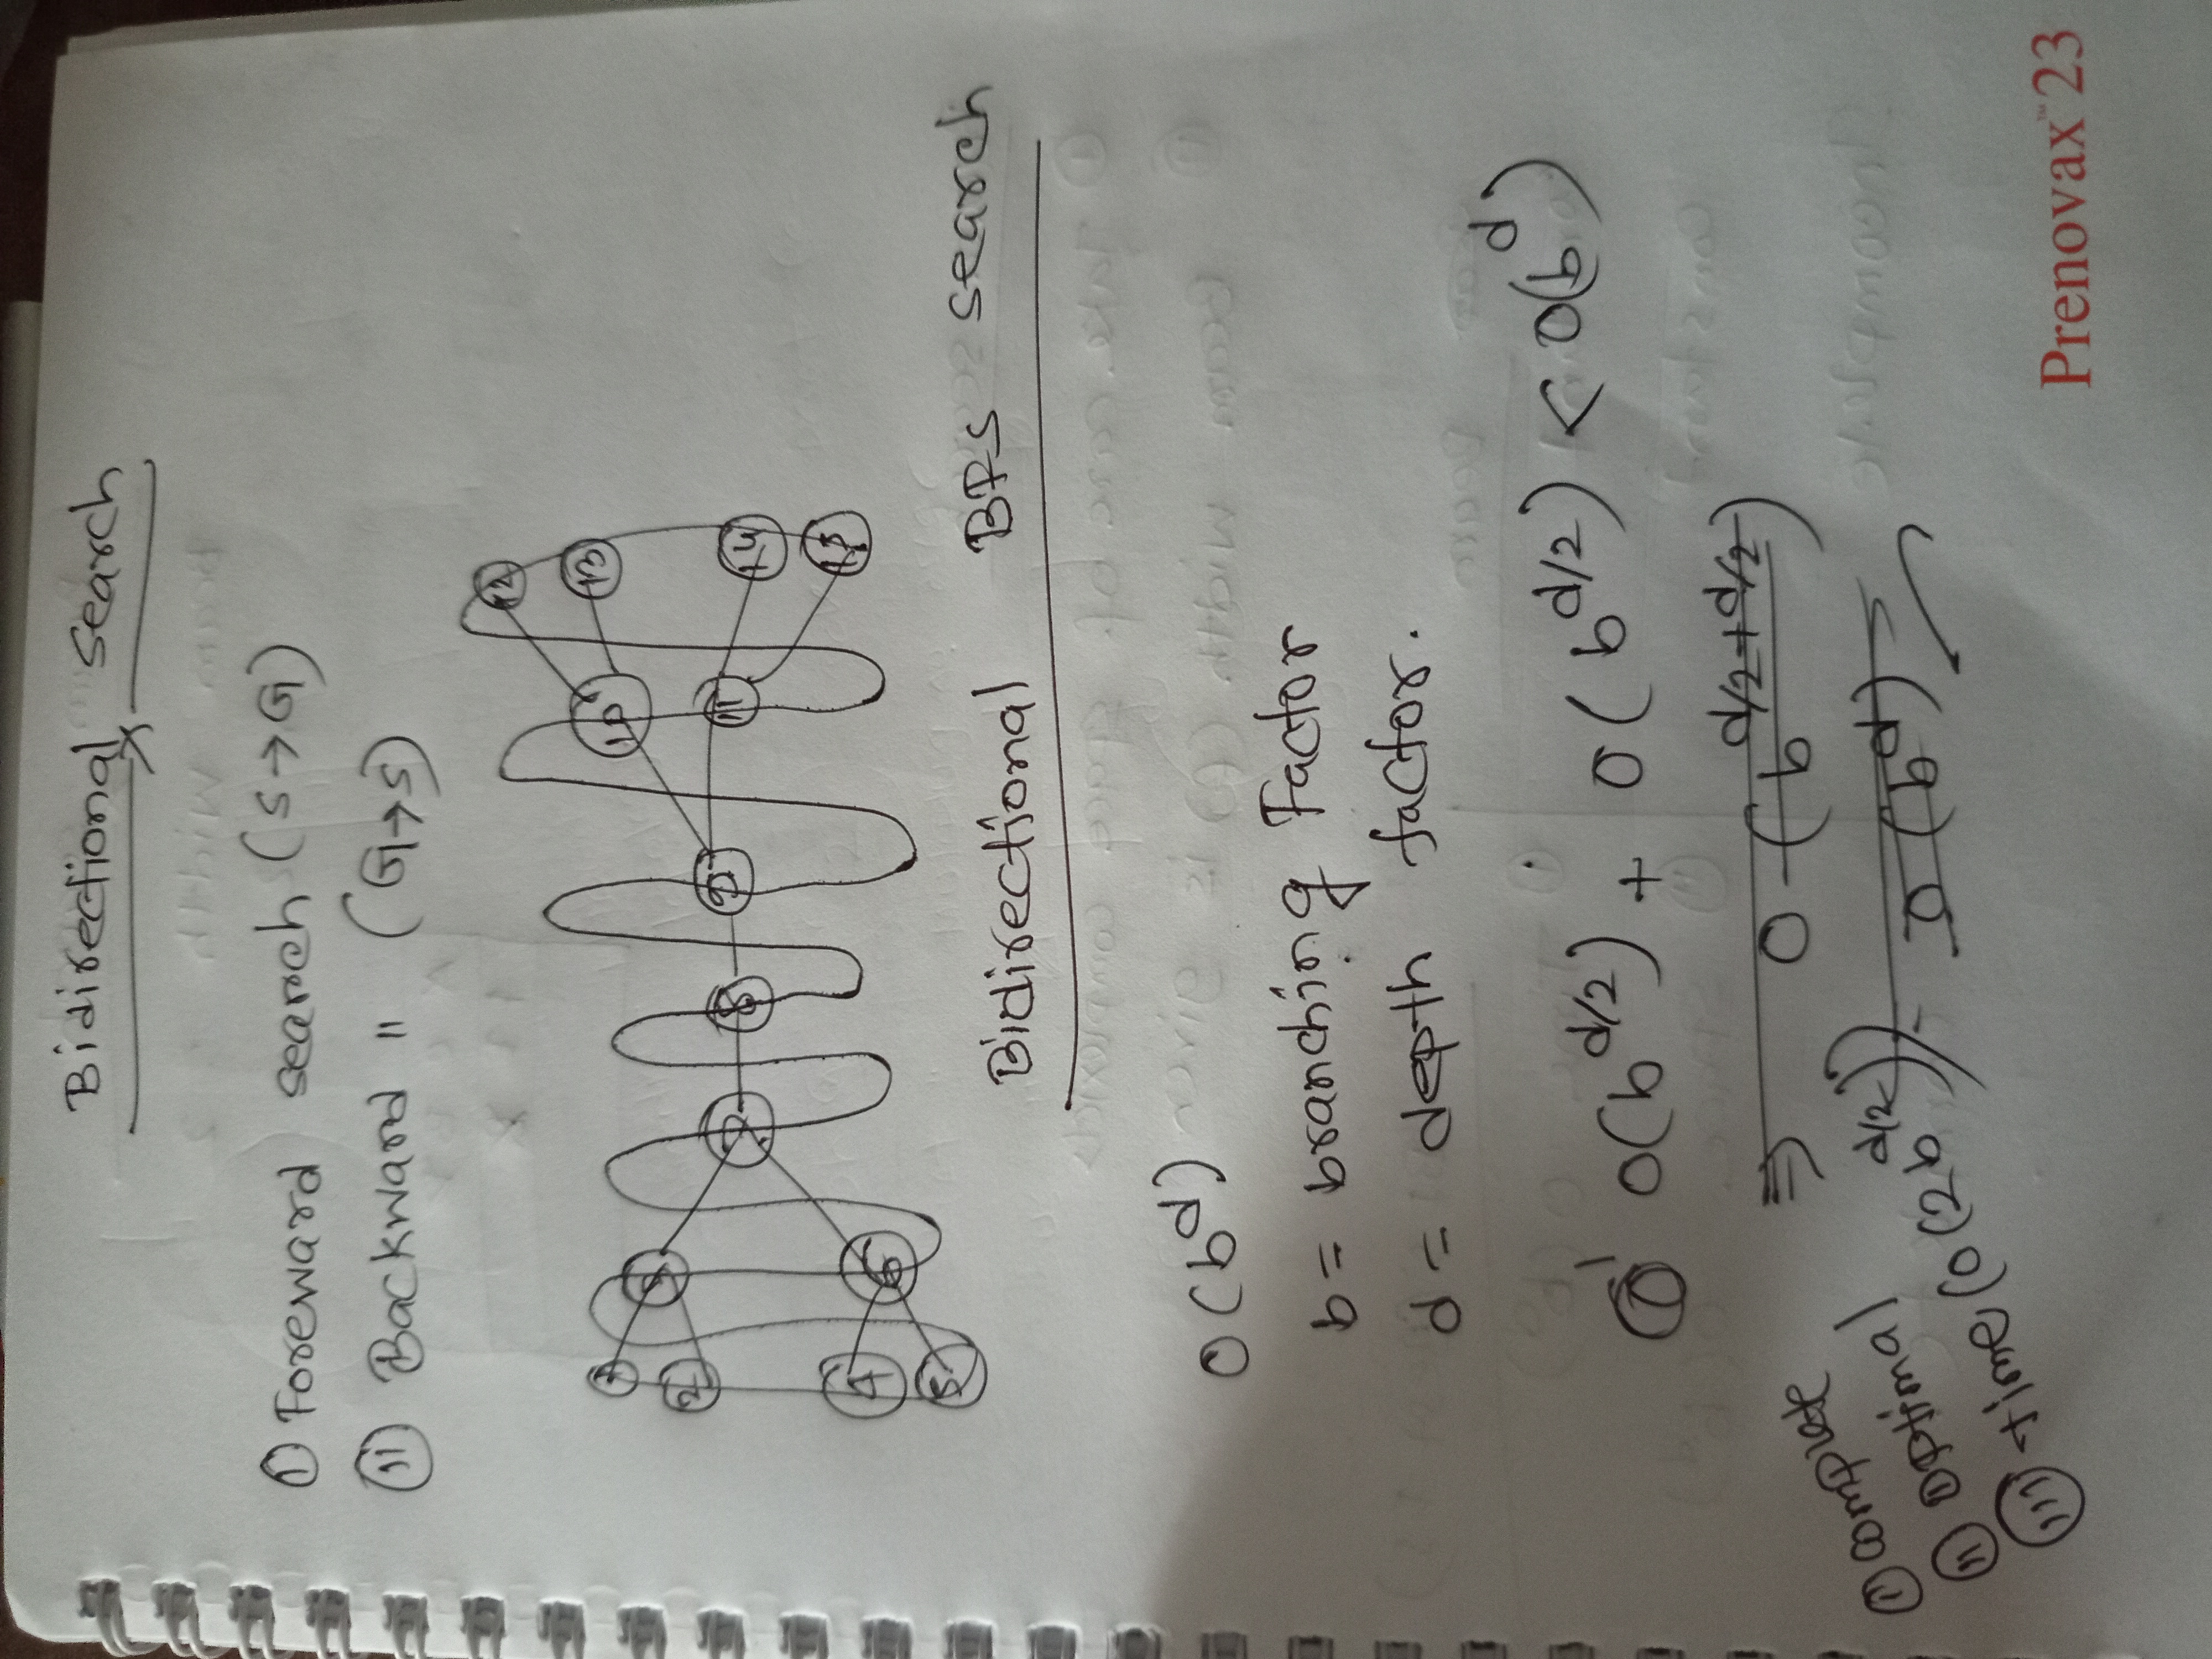 Bidirectional search
(i) Foreward search (S→G)
(ii) Backward " (G→S)
1 2 4 5
6
7
8
9
11 10
12 13 14 15
Bidirectional BFS search
O(b^d)
b = branching Factor
d = depth factor.
O(b^d/2) + O(b^d/2) < O(b^d)
⇒ O (b^d/2+d/2)
(i) complete
(ii) optimal
(iii) time (O(2b^d/2)) - O(b^d)
Prenovax™ 23